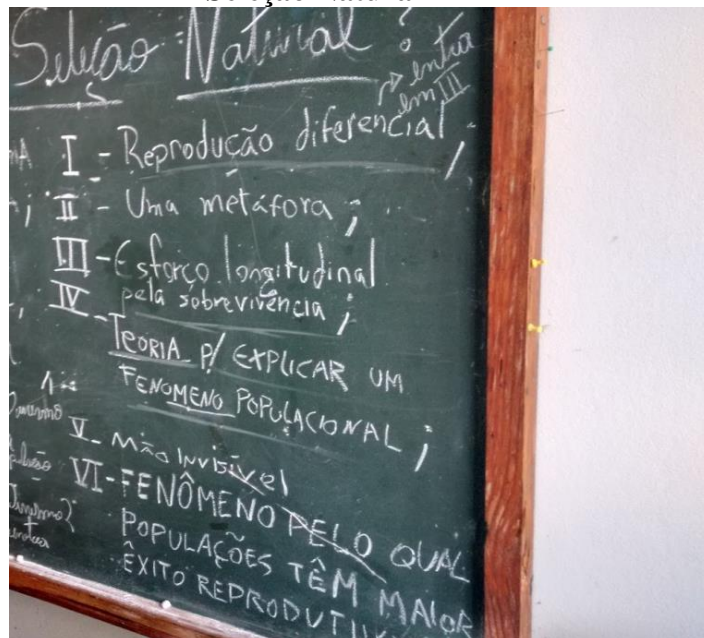 Seleção Natural?
↳ entra em III
I - Reprodução diferencial;
II - Uma metáfora;
III - Esforço longitudinal
pela sobrevivência;
IV - TEORIA P/ EXPLICAR UM
FENOMENO POPULACIONAL;
V - Mão Invisível
VI - FENÔMENO PELO QUAL
POPULAÇÕES TÊM MAIOR
ÊXITO REPRODUTIV